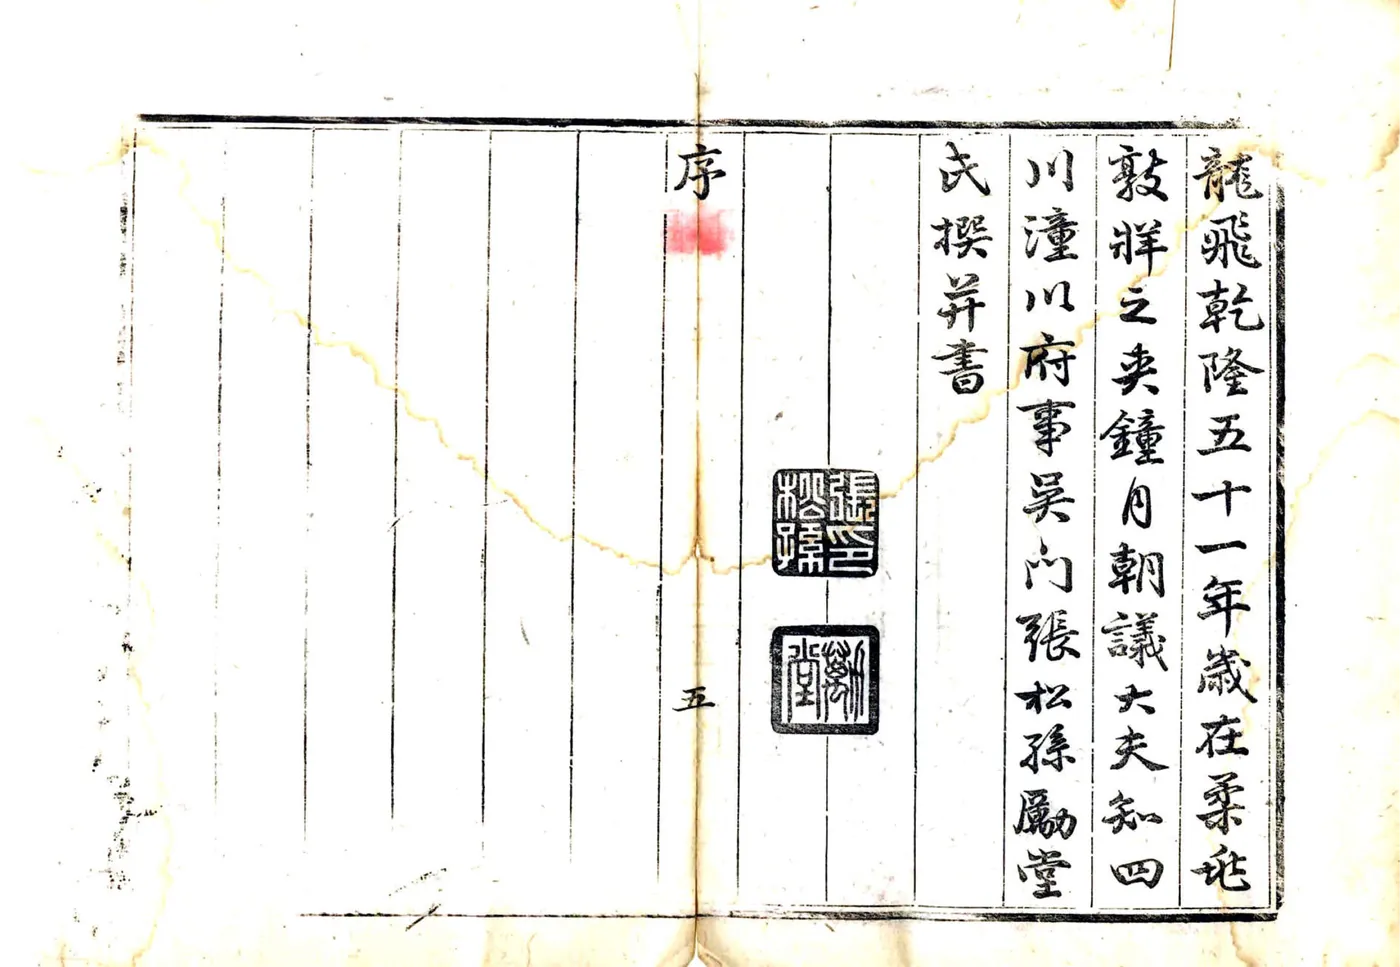 龍飛乾隆五十一年歲在柔兆
敦牂之夾鐘月朝議大夫知四
川潼川府事吳門張松孫勵堂
氏撰并書
張印
松孫
勱堂
序
五